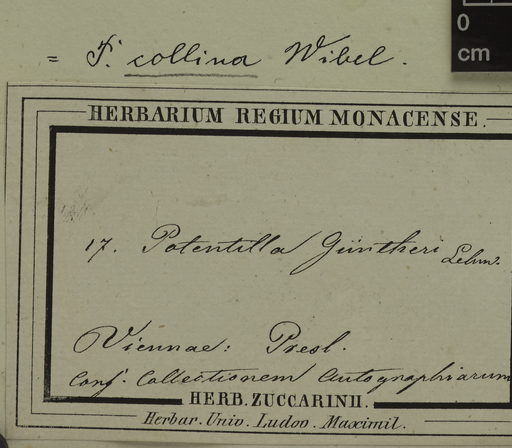 = P. collina Wibel.
0
cm
HERBARIUM REGIUM MONACENSE.
17. Potentilla Güntheri Lehm.
Viennae: Presl.
Conf. Collectionem Autographiarum
HERB. ZUCCARINII.
Herbar. Univ. Ludov. Maximil.